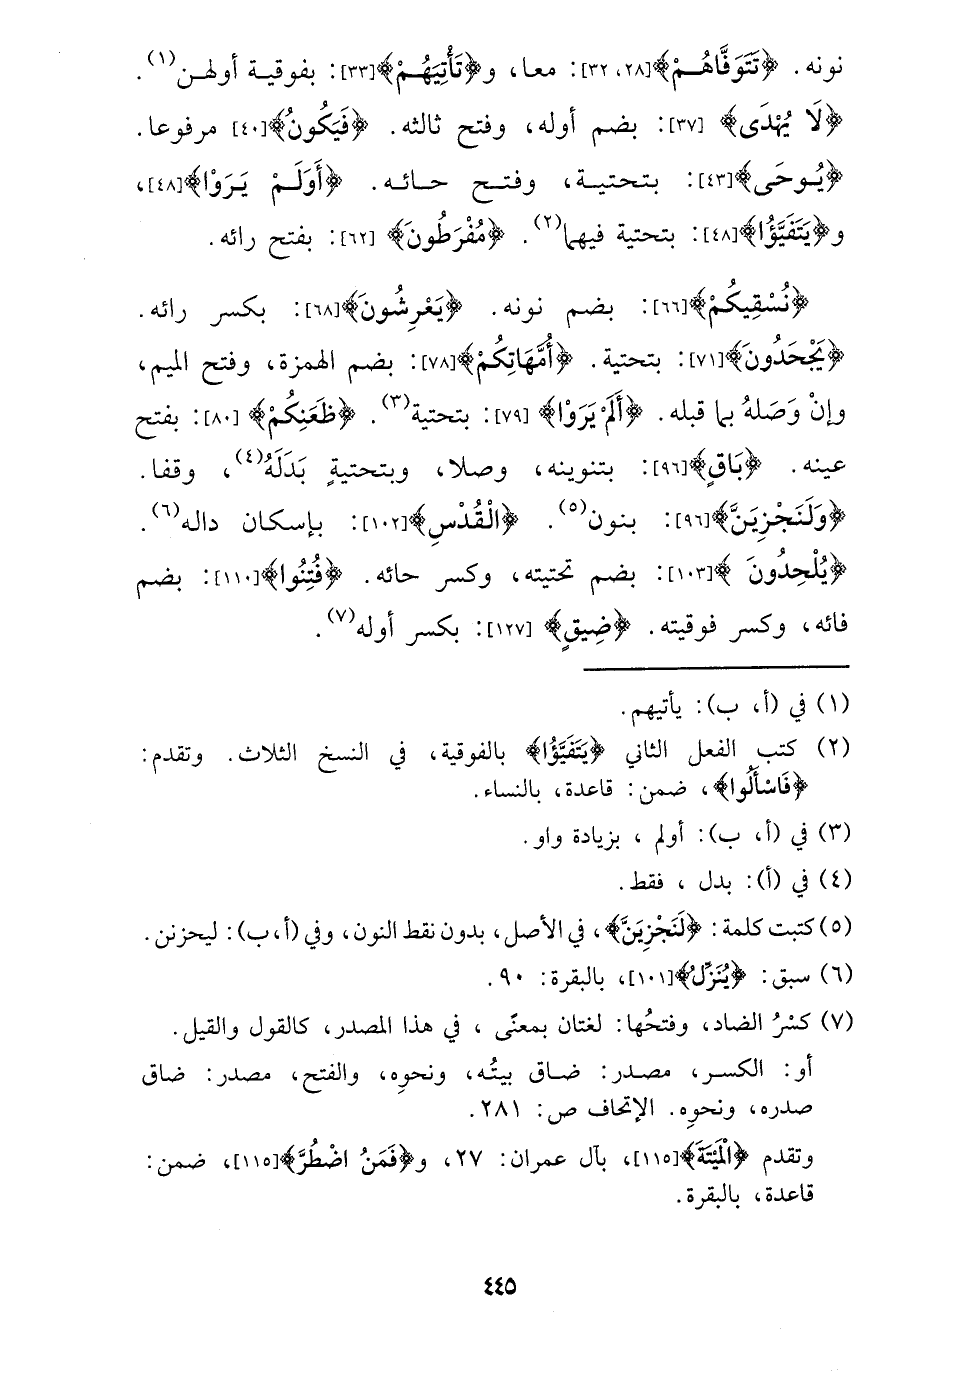 نونه. ﴿تَتَوَفَّاهُمْ﴾[٢٨، ٣٢]: معا، و﴿تَأْتِيَهُمْ﴾[٣٣]: بفوقية أولهن(١).
﴿لَا يُهْدَى﴾ [٣٧]: بضم أوله، وفتح ثالثه. ﴿فَيَكُونُ﴾[٤٠] مرفوعا.
﴿يُوحَى﴾[٤٣]: بتحتية، وفتح حائه. ﴿أَوَلَمْ يَرَوْا﴾[٤٨]،
و﴿يَتَفَيَّؤُا﴾[٤٨]: بتحتية فيهما(٢). ﴿مُفْرَطُونَ﴾ [٦٢]: بفتح رائه.
﴿نُسْقِيكُمْ﴾[٦٦]: بضم نونه. ﴿يَعْرِشُونَ﴾[٦٨]: بكسر رائه.
﴿يَجْحَدُونَ﴾[٧١]: بتحتية. ﴿أُمَّهَاتِكُمْ﴾[٧٨]: بضم الهمزة، وفتح الميم،
وإنْ وَصَلهُ بما قبله. ﴿أَلَمْ يَرَوْا﴾ [٧٩]: بتحتية(٣). ﴿ظَعَنِكُمْ﴾ [٨٠]: بفتح
عينه. ﴿بَاقٍ﴾[٩٦]: بتنوينه، وصلا، وبتحتيةٍ بَدَلَهُ(٤)، وقفا.
﴿وَلَنَجْزِيَنَّ﴾[٩٦]: بنون(٥). ﴿الْقُدْسِ﴾[١٠٢]: بإسكان داله(٦).
﴿يُلْحِدُونَ ﴾[١٠٣]: بضم تحتيته، وكسر حائه. ﴿فُتِنُوا﴾[١١٠]: بضم
فائه، وكسر فوقيته. ﴿ضِيقٍ﴾ [١٢٧]: بكسر أوله(٧).
(١) في (أ، ب): يأتيهم.
(٢) كتب الفعل الثاني ﴿يَتَفَيَّؤُا﴾ بالفوقية، في النسخ الثلاث. وتقدم:
﴿فَاسْأَلُوا﴾، ضمن: قاعدة، بالنساء.
(٣) في (أ، ب): أولم ، بزيادة واو.
(٤) في (أ): بدل ، فقط.
(٥) كتبت كلمة: ﴿لَنَجْزِيَنَّ﴾، في الأصل، بدون نقط النون، وفي (أ،ب): ليحزنن.
(٦) سبق: ﴿يُنَزِّلُ﴾[١٠١]، بالبقرة: ٩٠.
(٧) كسْرُ الضاد، وفتحُها: لغتان بمعنًى ، في هذا المصدر، كالقول والقيل.
أو: الكسر، مصدر: ضاق بيتُه، ونحوِه، والفتح، مصدر: ضاق
صدره، ونحوِه. الإتحاف ص: ٢٨١.
وتقدم ﴿الْمَيْتَةَ﴾[١١٥]، بآل عمران: ٢٧، و﴿فَمَنُ اضْطُرَّ﴾[١١٥]، ضمن:
قاعدة، بالبقرة.
٤٤٥